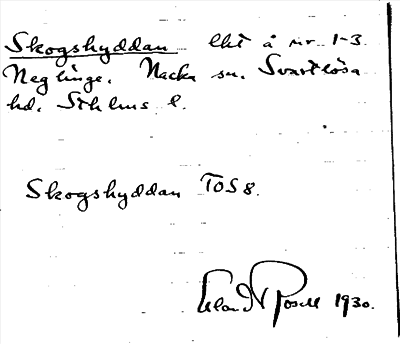 Skogshyddan lht å nr 1-3
Neglinge. Nacka sn. Svartlösa
hd. Sthlms l.
Skogshyddan TOS 8.
Erland Rosell 1930.